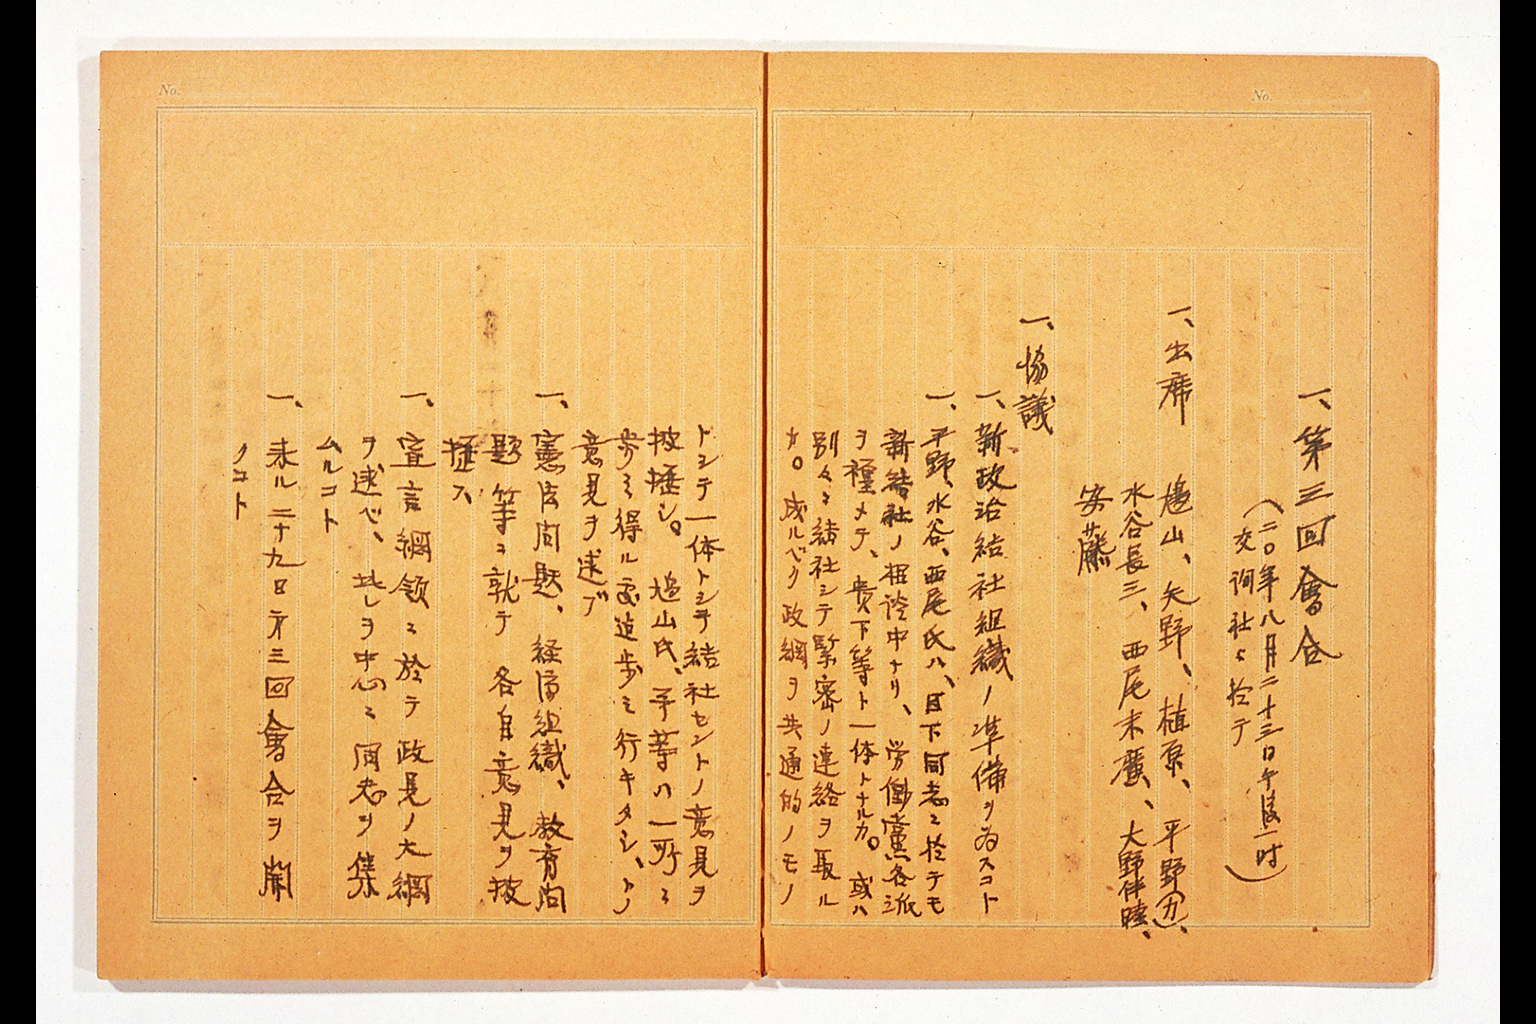 No.
一、第三回會合
(二〇年八月二十三日午後一時
交詢社ニ於テ)
一、出席 鳩山、矢野、植原、平野(力)、
水谷長三、西尾末廣、大野伴睦、
安藤
一、協議
一、新政治結社組織ノ準備ヲ為スコト
一、平野、水谷、西尾氏ハ、目下同志ニ於テモ
新結社ノ相談中ナリ、労働黨各派
ヲ種メテ、貴下等ト一体トナルカ。或ハ
別々ニ結社シテ緊密ノ連絡ヲ取ル
カ。成ルベク政綱ヲ共通的ノモノ
No.
トシテ一体トシテ結社セントノ意見ヲ
披攊シ。鳩山氏、予等ハ一所ニ
歩ミ得ル迄歩ミ行キタシ、トノ
意見ヲ述ブ
一、憲法問題、経済組織、教育問
題等ニ就テ各自意見ヲ披
攊ス
一、宣言綱領ニ於テ政見ノ大綱
ヲ述ベ、此レヲ中心ニ同志ヲ集
ムルコト
一、来ル二十九日才三回會合ヲ開
クコト